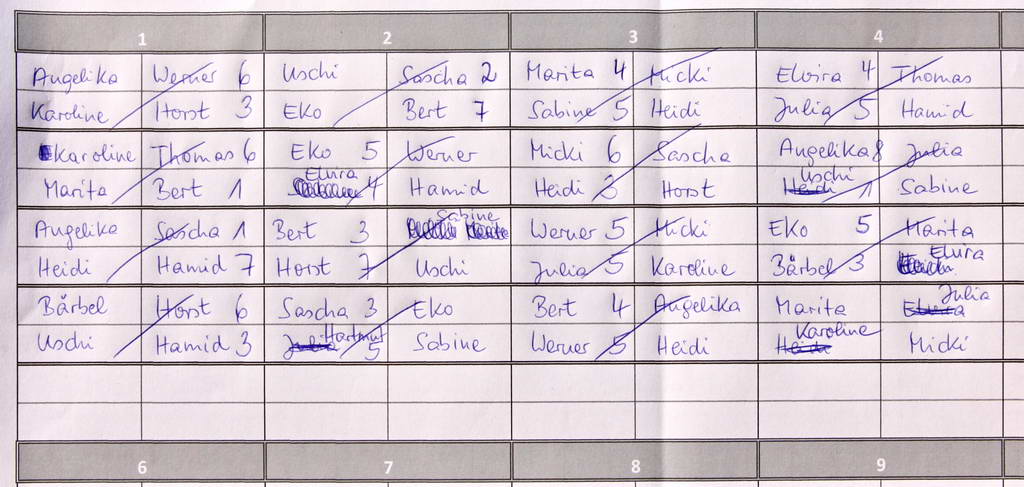 1 2 3 4
Angelika Werner 6 Uschi Sascha 2 Marita 4 Micki Elvira 4 Thomas
Karoline Horst 3 EKO Bert 7 Sabine 5 Heidi Julia 5 Hamid
Karoline Thomas 6 EKO 5 Werner Micki 6 Sascha Angelika 8 Julia
Marita Bert 1 Elvira 4 Hamid Heidi 3 Horst Heidi Uschi 1 Sabine
Angelika Sascha 1 Bert 3 Sabine Werner 5 Micki EKO 5 Marita
Heidi Hamid 7 Horst 7 Uschi Julia 5 Karoline Bärbel 3 Elvira
Bärbel Horst 6 Sascha 3 EKO Bert 4 Angelika Marita Elvira Julia
Uschi Hamid 3 Julia Hartmut 5 Sabine Werner 5 Heidi Heidi Karoline Micki
6 7 8 9